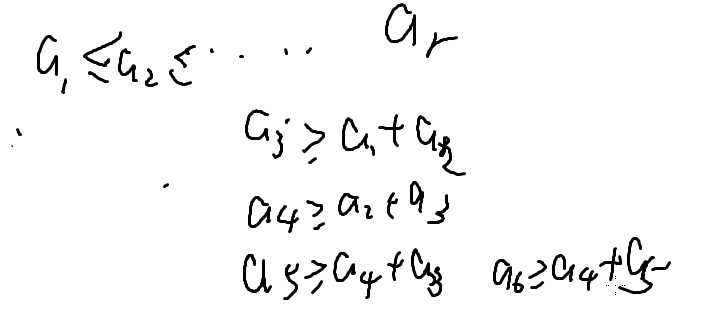 a₁ ≤ a₂ ≤ ····· aᵣ
a₃ ≥ a₁ + a₂
a₄ ≥ a₂ + a₃
a₅ ≥ a₄ + a₃ a₆ ≥ a₄ + a₅